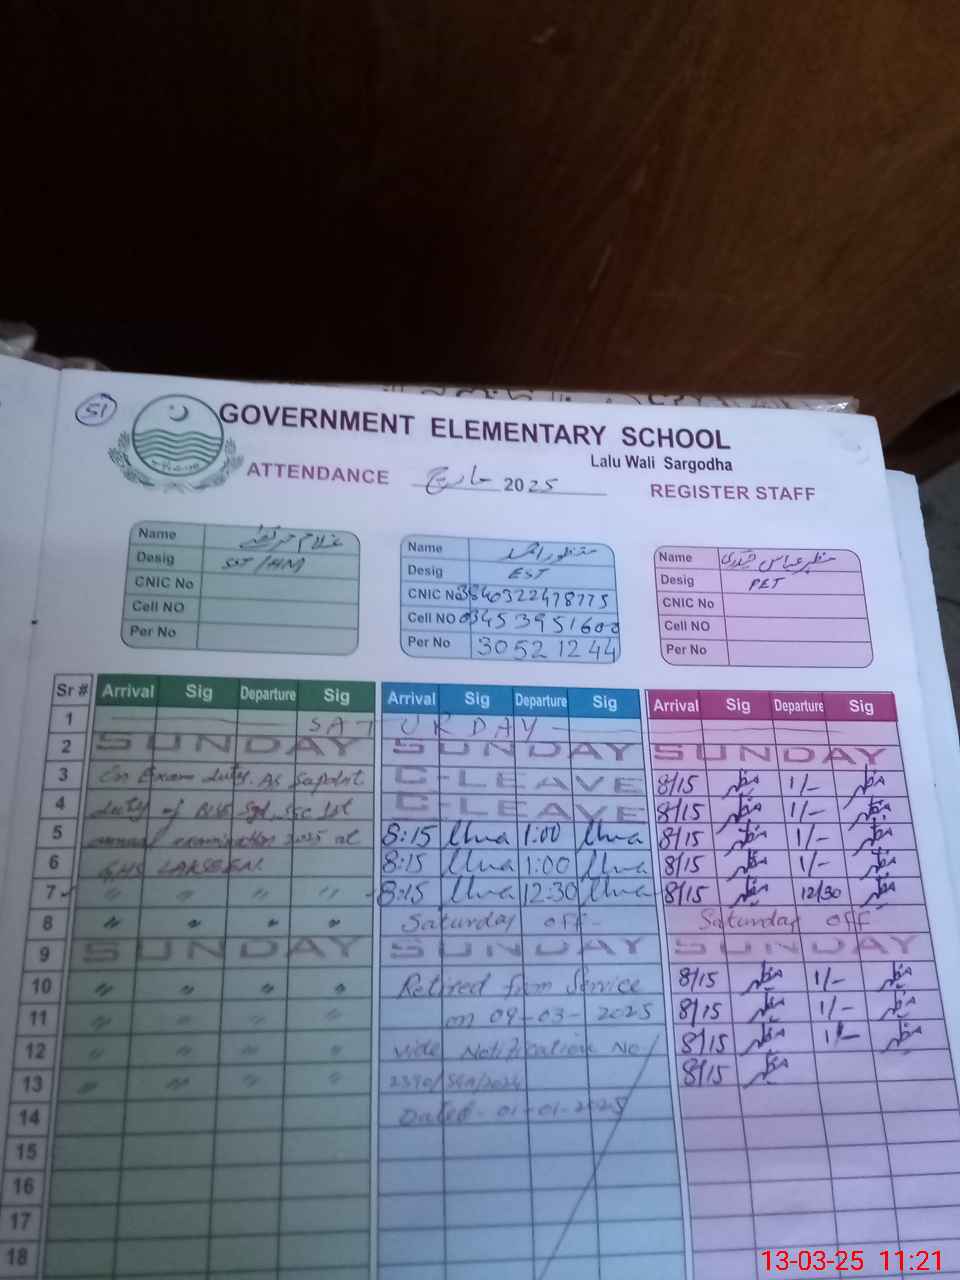 51
GOVERNMENT ELEMENTARY SCHOOL
Lalu Wali Sargodha
ATTENDANCE مارچ 2025 REGISTER STAFF
Name غلام مرتضیٰ
Desig SST/HM
CNIC No
Cell NO
Per No
Name منظور احمد
Desig EST
CNIC No 3840322478775
Cell NO 03453951600
Per No 30521244
Name مظہر عباس حیدری
Desig PET
CNIC No
Cell NO
Per No
Sr # Arrival Sig Departure Sig Arrival Sig Departure Sig Arrival Sig Departure Sig
1 SATURDAY
2 SUNDAY SUNDAY SUNDAY
3 On Exam duty. As C-LEAVE 8/15 مظہر 1/- مظہر
4 duty of SSC 1st C-LEAVE 8/15 مظہر 1/- مظہر
5 annual examination 2025 at 8:15 1:00 8/15 مظہر 1/- مظہر
6 GHS 8:15 1:00 8/15 مظہر 1/- مظہر
7 " " " " 8:15 12:30 8/15 مظہر 12/30 مظہر
8 " " " " Saturday off- Saturday off
9 SUNDAY SUNDAY SUNDAY
10 " " " " Retired from Service 8/15 مظہر 1/- مظہر
11 " " " " on 09-03-2025 8/15 مظہر 1/- مظہر
12 " " " " vide Notification No/ 8/15 مظہر 1/- مظہر
13 " " " " 8/15 مظہر
14 Dated- 01-01-2025
15
16
17
18
13-03-25 11:21